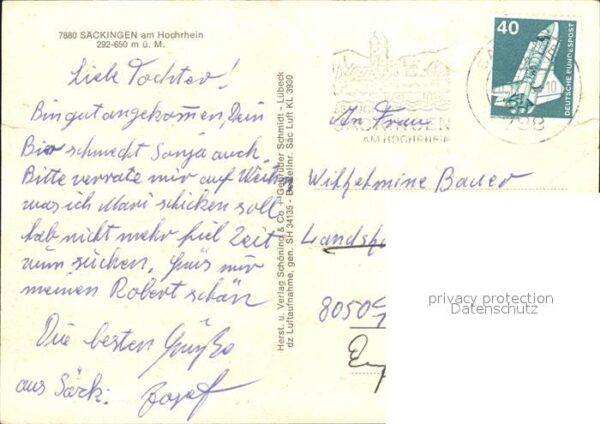 7880 SÄCKINGEN am Hochrhein
292-650 m ü. M.
Liebe Tochter!
Bin gut angekommen, Dein
Bier schmeckt Sonja auch.
Bitte verrate mir auf Weih
was ich Mari schicken soll
hab nicht mehr viel Zeit
zum suchen. Grüs mir
meinen Robert schön
Die besten Grüße
aus Säck. Josef
Herst. u. Verlag Schöning & Co + Gebrüder Schmidt - Lübeck
dz Luftaufnahme, gen. SH 34135 - Bestellnr. Säc Luft KL 3930
SÄCKINGEN
AM HOCHRHEIN
788
10
40
DEUTSCHE BUNDESPOST
An Frau
Wilhelmine Bauer
Landsh
8050
privacy protection
Datenschutz